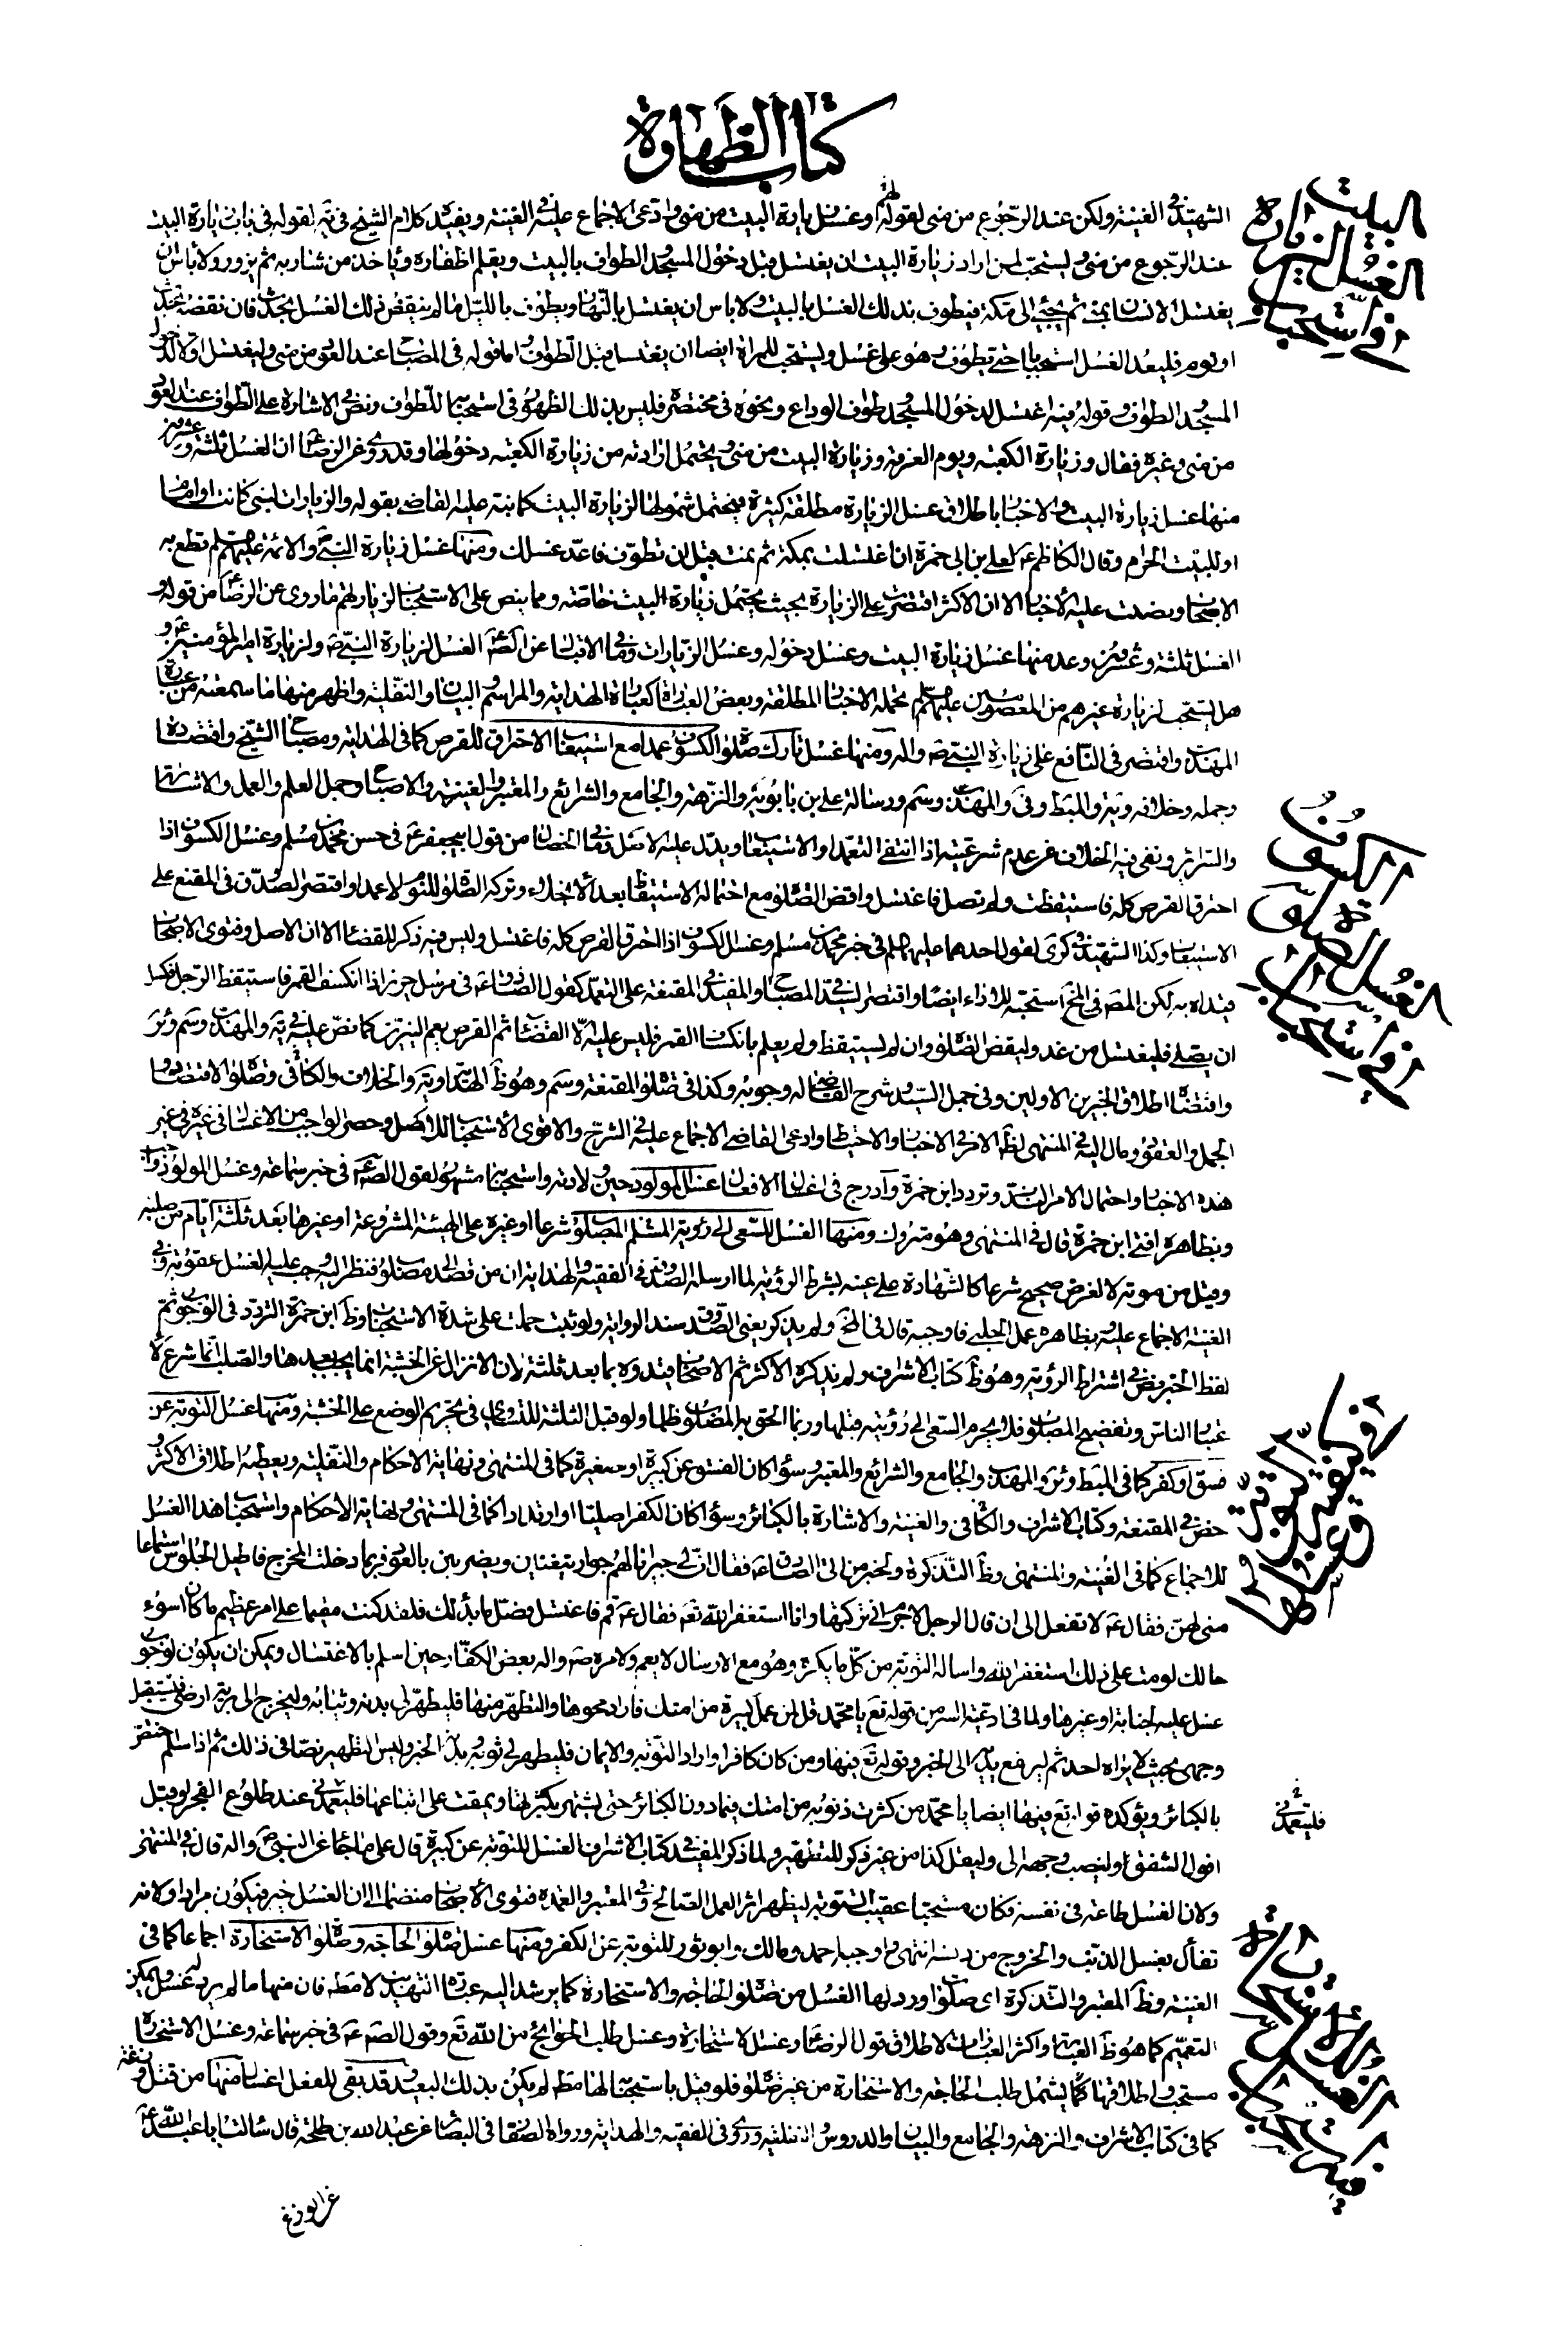 كتاب الطهارة
الشهيد في الغنية ولكن عند الرجوع من منى لقوله وغسل زيارة البيت من منى وادعى الاجماع عليه في الغنية ويفيده كلام الشيخ في يه لقوله في باب زيارة البيت
عند الرجوع من منى ويستحب لمن اراد زيارة البيت ان يغتسل قبل دخول المسجد الطواف بالبيت ويقلم اظفاره وياخذ من شاربه ثم يزور ولا باس ان
يغتسل الانسان بمنى ثم يجيئ الى مكة فيطوف بذلك الغسل بالبيت ولا باس ان يغتسل بالنهار ويطوف بالليل ما لم ينقض ذلك الغسل بحدث فان نقضه بحدث
او نوم فليعد الغسل استحبابا حتى يطوف وهو على غسل ويستحب للمراة ايضا ان يغتسل قبل الطواف واما قوله في المصباح عند العود من منى وليغتسل اولا لدخول
المسجد والطواف وقوله فيه اغتسل لدخول المسجد وطواف الوداع ونحوه في مختصره فليس بذلك الظهور في استحبابهما للطواف ونص في الاشارة على الطواف عند العود
من منى وغيره فقال وزيارة الكعبة ويوم العرفة وزيارة البيت من منى ويحتمل ارادته من زيارة الكعبة دخولها وقد روى عن الرضا ان الغسل ثلثة وعشرين
منها غسل زيارة البيت والاخبار باطلاق غسل الزيارة مطلقة كثيرة فيحتمل شمولها لزيارة البيت كما نبه عليه القاضي بقوله والزيارات لنبي كانت او امام
او للبيت الحرام وقال الكاظم ع لعلي بن ابي حمزة ان اغتسلت بمكة ثم نمت قبل ان تطوف فاعد غسلك ومنها غسل زيارة النبي والائمة عليهم السلم قطع به
الاصحاب ونصت عليه الاخبار الا ان الاكثر اقتصرت على الزيارة بحيث يحتمل زيارة البيت خاصة ومما ينص على الاستحباب لزيارتهم ما روى عن الرضا من قوله و
الغسل ثلثة وعشرون وعد منها غسل زيارة البيت وغسل دخوله وغسل الزيارات وفي الاقبال عن الصم الغسل لزيارة النبي ص ولزيارة امير المؤمنين ع و
هل يستحب لزيارة غيرهم من المعصومين عليهم السلم يحتمله الاخبار المطلقة وبعض العبارات كعبارة الهداية والمراسم والبيان والنفلية واظهر منها ما سمعته من عبارة
المهذب واقتصر في النافع على زيارة النبي ص واله ومنها غسل تارك صلوة الكسوف عمدا مع استيعاب الاحتراق للقرص كما في الهداية ومصباح الشيخ واقتصاده
وجمله وخلافه ويه والمبسط وفي والمهذب وسم ورسالة علي بن بابويه والنزهة والجامع والشرايع والمعتبر والغنية والاصباح وجمل العلم والعمل والاشارة
والسرائر ونفى فيه الخلاف عن عدم شرعيته اذا انتفى التعمد او الاستيعاب ويدل عليه الاصل وفي الخصال من قول ابي جعفر ع في حسن محمد بن مسلم وغسل الكسوف اذا
احترق القرص كله فاستيقظت ولم تصل فاغتسل واقض الصلوة مع احتماله الاستيقاظ بعد الانجلاء وتركه الصلوة للنوم لا عمدا واقتصر الصدوق في المقنع على
الاستيعاب وكذا الشهيد في كرى لقول احدهما عليهما السلم في خبر محمد بن مسلم وغسل الكسوف اذا احترق القرص كله فاغتسل وليس فيه ذكر للقضاء الا ان الاصل وفتوى الاصحاب
قيداه به لكن المص في المخ استحبه للاداء ايضا واقتصر السيد في المصباح والمفيد في المقنعة على التعمد كقول الصادق ع في مرسل حريز اذا انكسف القمر فاستيقظ الرجل فكسل
ان يصلى فليغتسل من غد وليقض الصلوة وان لم يستيقظ ولم يعلم بانكساف القمر فليس عليه الا القضاء ثم القرص يعم النيرين كما نص عليه في يه والمهذب وسم وئر
واقتضاه اطلاق الخبرين الاولين وفي جمل السيد وشرح القاضي له وجوبه وكذا في صلوة المقنعة وسم وهو ظ الهداية ويه والخلاف والكافي وصلوة الاقتصاد و
الجمل والعقود ومال اليه في المنتهى لظ الامر في الاخبار والاحتياط وادعى القاضي الاجماع عليه في الشرح والاقوى الاستحباب للاصل وحصر الواجب من الاغسال في غيره في غير
هذه الاخبار واحتمال الامر الندب وتردد ابن حمزة وادرج في اغسال الافعال غسل المولود حين ولادته واستحبابه مشهور لقول الصم ع في خبر سماعة وغسل المولود واجب
وبظاهره افتى ابن حمزة قال في المنتهى وهو متروك ومنها الغسل للسعى الى رؤية المسلم المصلوب شرعا او غيره على الهيئة المشروعة او غيرها بعد ثلثة ايام من صلبه
وقيل من موته لا لغرض صحيح شرعا كالشهادة على عينه بشرط الرؤية لما ارسله الصدوق في الفقيه والهداية ان من قصد الى مصلوب فنظر اليه وجب عليه الغسل عقوبة وفي
الغنية الاجماع عليه وبظاهره عمل الحلبي فاوجبه قال في المخ ولم يذكر يعني الصدوق سند الرواية ولو ثبت حملت على شدة الاستحباب وظ ابن حمزة التردد في الوجوب ثم
لفظ الخبر نص في اشتراط الرؤية وهو ظ كتاب الاشراف ولم يذكره الاكثر ثم الاصحاب قيدوه بما بعد ثلثة لان الانزال عن الخشبة انما يجب بعدها والصلب انما شرع لا
عتبار الناس وتفضيح المصلوب فلا يحرم السعى الى رؤيته قبلها وربما الحق به المصلوب ظلما ولو قبل الثلثة للتساوي في تحريم الوضع على الخشبة ومنها غسل التوبة عن
فسق او كفر كما في المبسط وئر والمهذب والجامع والشرايع والمعتبر وسواء كان الفسق عن كبيرة او صغيرة كما في المنتهى ونهاية الاحكام والنفلية ويعطيه اطلاق الاكثر و
خص في المقنعة وكتاب الاشراف والكافي والغنية والاشارة بالكبائر وسواء كان الكفر اصليا او ارتدادا كما في المنتهى ونهاية الاحكام واستحباب هذا الغسل
للاجماع كما في الغنية والمنتهى وظ التذكرة ولخبر من اتى الصادق ع فقال ان لي جيرانا لهم جوار يتغنين ويضربن بالعود فربما دخلت المخرج فاطيل الجلوس استماعا
منى لهن فقال ع لا تفعل الى ان قال الرجل لا جرم اني تركتها وانا استغفر الله تعم فقال ع قم فاغتسل وصل ما بدا لك فلقد كنت مقيما على امر عظيم ما كان اسوء
حالك لو مت على ذلك استغفر الله واساله التوبة من كل ما يكره وهو مع الارسال لا يعم ولامره ص واله بعض الكفار حين اسلم بالاغتسال ويمكن ان يكون لوجوب
غسل عليه لجنابة او غيرها ولما في ادعية السر من قوله تع يا محمد قل لمن عمل كبيرة من امتك فاراد محوها والتطهر منها فليطهر لي بدنه وثيابه وليخرج الى برية ارضي فليستقبل
وجهى بحيث لا يراه احد ثم ليرفع يديه الى الخبر وقوله تع فيها ومن كان كافرا واراد التوبة والايمان فليطهر لي ثوبه وبدنه الخبر وليس التطهير نصا في ذلك ثم اذا اسلم
بالكبائر ويؤكده قوله تع فيها ايضا يا محمد من كثرت ذنوبه من امتك فيما دون الكبائر حتى يشتهر بكثرتها ويمقت على اتباعها فليعمدني عند طلوع الفجر او قبل
افول الشفق ولينصب وجهه الى وليقل كذا من غير ذكر للتطهير ولما ذكر المفيد في كتاب الاشراف الغسل للتوبة عن كبيرة قال على ما جاء عن النبي ص واله قال في المنتهى
ولان الغسل طاعة في نفسه فكان مستحبا عقيب التوبة ليظهر اثر العمل الصالح وفي المعتبر والعمدة فتوى الاصحاب منضما الى ان الغسل خير فيكون مرادا ولانه
تفأل بغسل الذنب والخروج من دنسه انتهى واوجبه احمد ومالك وابو ثور للتوبة عن الكفر ومنها غسل صلوة الحاجة وصلوة الاستخارة اجماعا كما في
الغنية وظ المعتبر والتذكرة اى صلوة اورد لها الغسل من صلوة الحاجة والاستخارة كما يرشد اليه عبارة التهذيب لا مط فان منها ما لم يرد له غسل ويمكن
التعميم كما هو ظ العبارة واكثر العبارات لاطلاق قول الرضا ع وغسل الاستخارة وغسل طلب الحوائج من الله تع وقول الصم ع في خبر سماعة وغسل الاستخارة
مستحب واطلاقها كما يشمل طلب الحاجة والاستخارة من غير صلوة فلو قيل باستحبابه لهما مط لم يكن بذلك البعيد وقد بقى للفعل اغسال منها من قتل وزغة
كما في كتاب الاشراف والنزهة والجامع والبيان والدروس والنفلية وروى في الفقيه والهداية ورواه الصفار في البصائر عن عبد الله بن طلحة قال سالت ابا عبد الله ع
عن الوزغ
في استحباب الغسل لزيارة البيت
في استحباب الغسل لصلوة الكسوف
فليعمدني
في استحباب الغسل